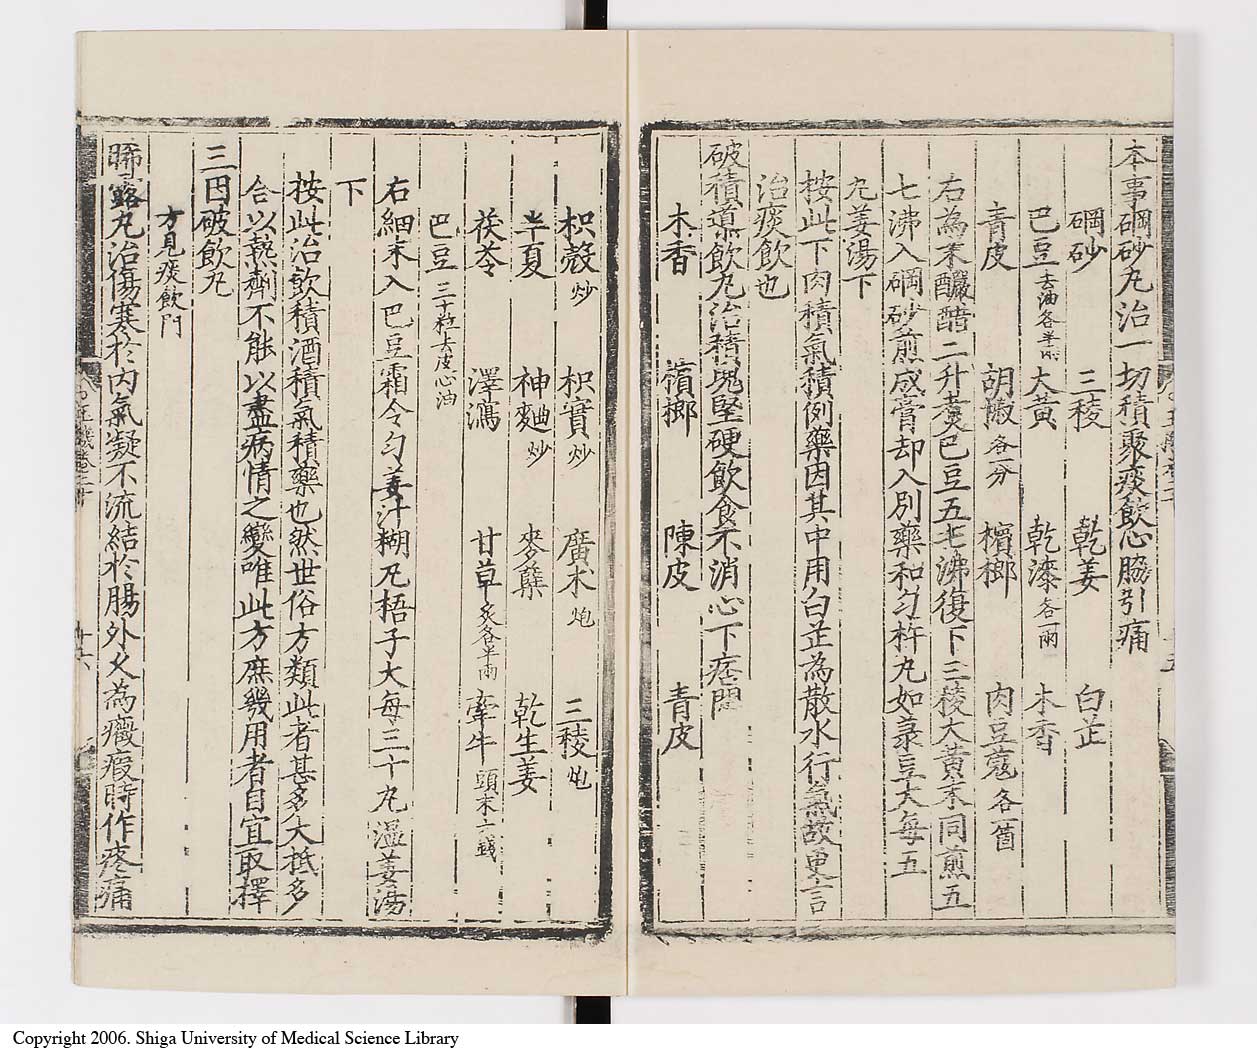 本事硇砂丸治一切積聚痰飲心脇引痛
硇砂 三稜 乾姜 白芷
巴豆去油各半兩 大黄 乾漆各一兩 木香
青皮 胡椒各一分 檳榔 肉豆蔻各一箇
右為末釅醋二升煮巴豆五七沸復下三稜大黄末同煎五
七沸入硇砂煎成膏却入別藥和匀杵丸如菉豆大每五
丸姜湯下
按此下肉積氣積例藥因其中用白芷為散水行氣故更言
治痰飲也
破積導飲丸治積塊堅硬飲食不消心下痞悶
木香 檳榔 陳皮 青皮
枳殼炒 枳實炒 廣木炮 三稜炮
半夏 神麯炒 麥蘖 乾生姜
茯苓 澤瀉 甘草炙各半兩 牽牛頭末六錢
巴豆三十粒去皮心油
右細末入巴豆霜令匀姜汁糊丸梧子大每三十丸温姜湯
下
按此治飲積酒積氣積藥也然世俗方類此者甚多大抵多
合以熱劑不能以盡病情之變唯此方庶幾用者自宜取擇
三因破飲丸
方見痰飲門
晞露丸治傷寒於内氣凝不流結於腸外久為癥瘕時作疼痛
十六